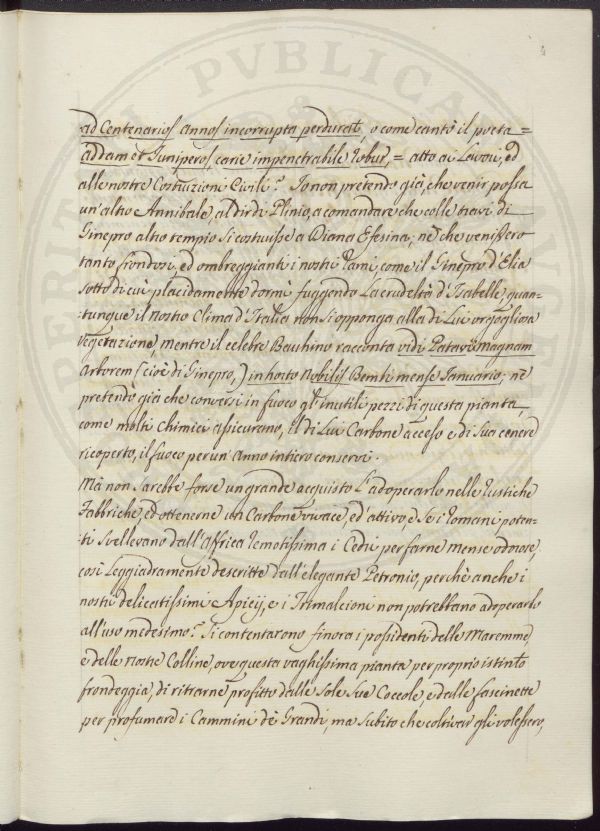 4
ad Centenarios annos incorrupta perdurat, o come cantò il poeta =
ad dam et Juniperos, carie impenetrabile robur, = atto ai Lavori, ed
alle nostre Costruzioni Civili? Io non pretendo già, che venir possa
un'altro Annibale, al dir di Plinio, a comandare che colle travi di
Ginepro alto tempio si costruisse a Diana Efesina; nè che venissero
tanto frondosi, ed ombreggianti i nostri rami, come il Ginepro d'Elia
sotto di cui placidamente dormì fuggendo La crudeltà d'Isabelle, quan-
tunque il nostro Clima d'Italia non si opponga alla di Lui orgogliosa
vegetazione, mentre il celebre Bauhino racconta vidi Patavii magnam
Arborem (cioè di Ginepro,) in horto Nobilis Bembi mense Januario; nè
pretendo già che conversi in fuoco gl'inutili pezzi di questa pianta,
come molti chimici assicurano, il di Lui Carbone acceso e di sua cenere
ricoperto, il fuoco per un' Anno intiero conservi.
Mà non sarebbe forse un grande acquisto L'adoperarlo nelle rustiche
Fabbriche, ed ottenerne un Carbone vivace, ed attivo, e Se i romani poten-
ti svellevano dall'Affrica remotissima i Cedri per farne mense odorose,
così Leggiadramente descritte dall'elegante Petronio, perchè anche i
nostri delicatissimi Apicij, e i Trimalcioni non potrebbano adoperarlo
all'uso medesmo? Si contentarono finora i possidenti delle Maremme,
e delle nostre Colline, ove questa vaghissima pianta per proprio istinto
frondeggia, di ritrarne profitto dalle sole sue Coccole, e dalle fascinette
per profumare i Cammini dè Grandi, ma subito che coltivar gli volessero,